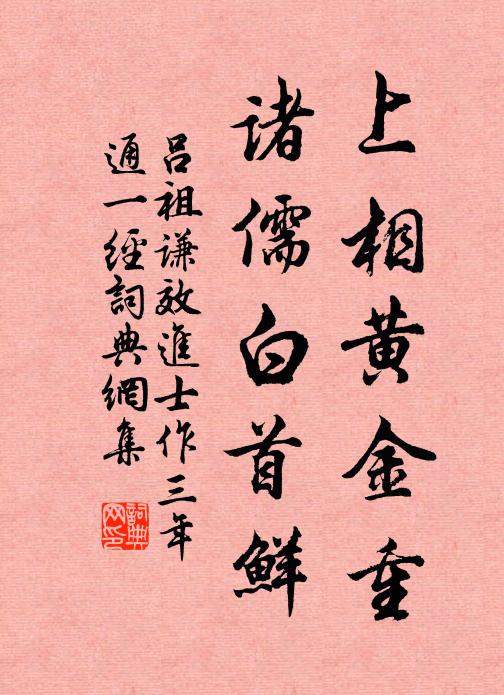 上相黄金重
诸儒白首鲜
吕祖谦效進士作三年
通一經詞典網集
詞典
网印